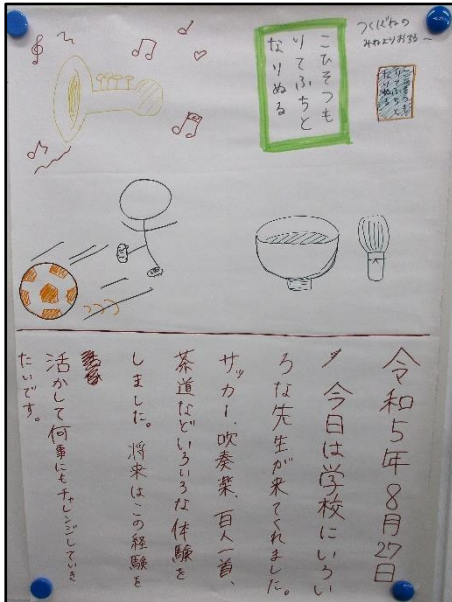 つくばねの
みねよりおつる〜
こひそつも
りてふちと
なりぬる
こひそつも
りてふちと
なりぬる
令和5年8月27日
今日は学校にいろい
ろな先生が来てくれました。
サッカー、吹奏楽、百人一首、
茶道などいろいろな体験を
しました。将来はこの経験を
活かして何事にもチャレンジしていき
たいです。